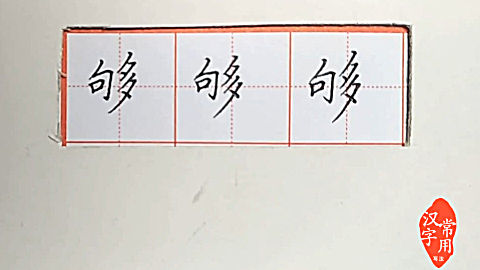 够 够 够
常用
汉字
写法